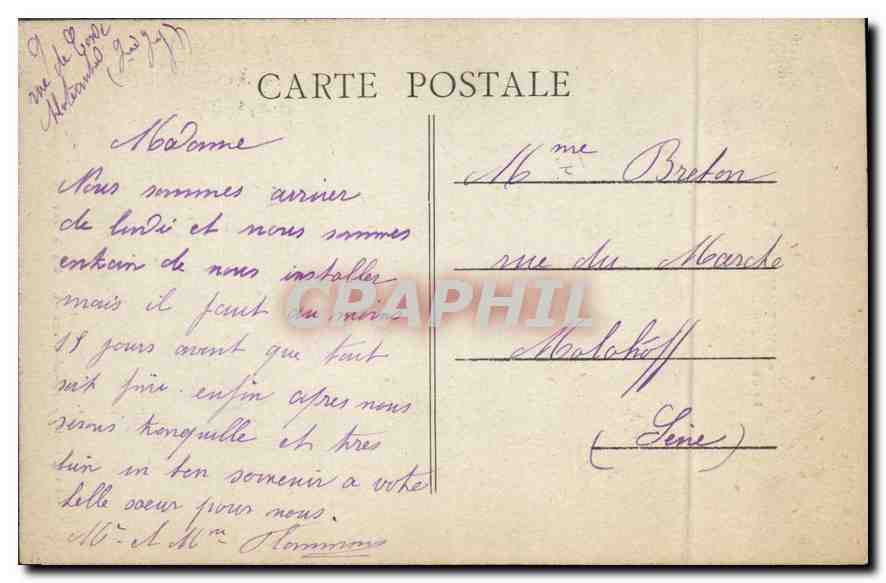 9
rue de
CARTE POSTALE
Madame
Nous sommes arriver
de lundi et nous sommes
entrain de nous installer
mais il faut au moins
15 jours avant que tout
soit finie enfin apres nous
serons tranquille et tres
bien un bon souvenir a votre
belle soeur pour nous.
Mr et Mme
Mme Breton
rue du Marché
Malakoff
(Seine)
CPAPHIL